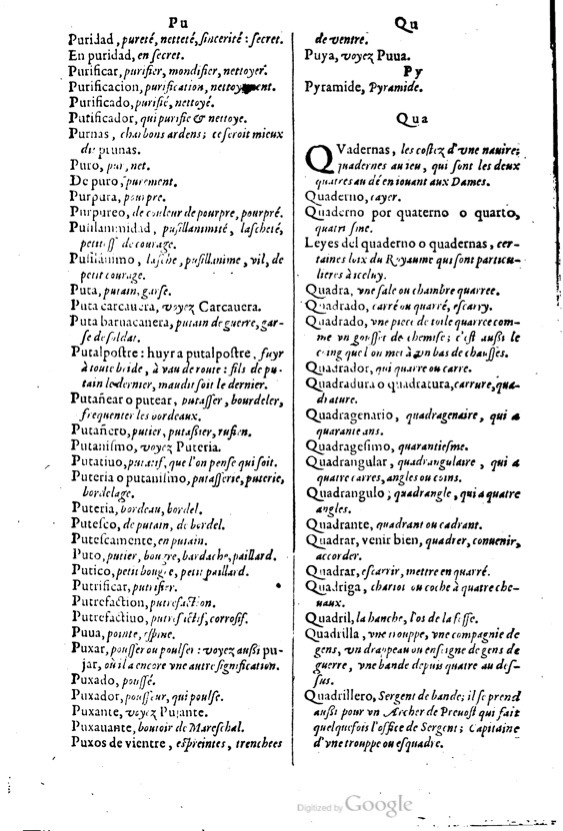 Pu
Puridad, pureté, netteté, sincerité : secret.
En puridad, en secret.
Purificar, purifier, mondifier, nettoyer.
Purificacion, purification, nettoyement.
Purificado, purifié, nettoyé.
Purificador, qui purifie & nettoye.
Purnas, charbons ardens; ce seroit mieux
dit prunas.
Puro, pur, net.
De puro, purement.
Purpura, pourpre.
Purpureo, de couleur de pourpre, pourpré.
Pusilanimidad, pusillanimité, lascheté,
petitesse de courage.
Pusilanimo, lasche, pusillanime, vil, de
petit courage.
Puta, putain, garse.
Puta carcauera, voyez Carcauera.
Puta baruacanera, putain de guerre, gar-
se de soldat.
Putalpostre : huyr a putalpostre, fuyr
à toute bride, à vau de route : fils de pu-
tain le dernier, maudit soit le dernier.
Putañear o putear, putasser, bourdeler,
frequenter les bordeaux.
Putañero, putier, putassier, rufien.
Putanismo, voyez Puteria.
Putatiuo, putatif, que l'on pense qui soit.
Puteria o putanismo, putasserie, puterie,
bordelage.
Puteria, bordeau, bordel.
Putesco, de putain, de bordel.
Putescamente, en putain.
Puto, putier, bougre, bardache, paillard.
Putico, petit bougre, petit paillard.
Putrificar, putrifier.
Putrefaction, putrefaction.
Putrefactiuo, putrefactif, corrosif.
Puua, pointe, espine.
Puxar, pousser ou poulser : voyez aussi pu-
jar, où il a encore vne autre signification.
Puxado, poussé.
Puxador, pousseur, qui poulse.
Puxante, voyez Pujante.
Puxauante, boutoir de Mareschal.
Puxos de vientre, espreintes, trenchees
Qu
de ventre.
Puya, voyez Puua.
Py
Pyramide, Pyramide.
Qua
QVadernas, les costez d'vne nauire;
quadernes au ieu, qui sont les deux
quatres au dé en iouant aux Dames.
Quaderno, cayer.
Quaderno por quaterno o quarto,
quatriesme.
Leyes del quaderno o quadernas, cer-
taines loix du Royaume qui sont particu-
lieres à iceluy.
Quadra, vne sale ou chambre quarree.
Quadrado, carré ou quarré, escarry.
Quadrado, vne piece de toile quarree com-
me vn gousset de chemise; c'est aussi le
coing que l'on met à vn bas de chausses.
Quadrador, qui quarre ou carre.
Quadradura o quadratura, carrure, qua-
drature.
Quadragenario, quadragenaire, qui a
quarante ans.
Quadragesimo, quarantiesme.
Quadrangular, quadrangulaire, qui a
quatre carres, angles ou coins.
Quadrangulo; quadrangle, qui a quatre
angles.
Quadrante, quadrant ou cadrant.
Quadrar, venir bien, quadrer, conuenir,
accorder.
Quadrar, escarrir, mettre en quarré.
Quadriga, chariot ou coche à quatre che-
uaux.
Quadril, la hanche, l'os de la fesse.
Quadrilla, vne trouppe, vne compagnie de
gens, vn drappeau ou enseigne de gens de
guerre, vne bande depuis quatre au des-
sus.
Quadrillero, Sergent de bande; il se prend
aussi pour vn Archer de Preuost qui fait
quelquefois l'office de Sergent; Capitaine
d'vne trouppe ou esquadre.
Digitized by Google